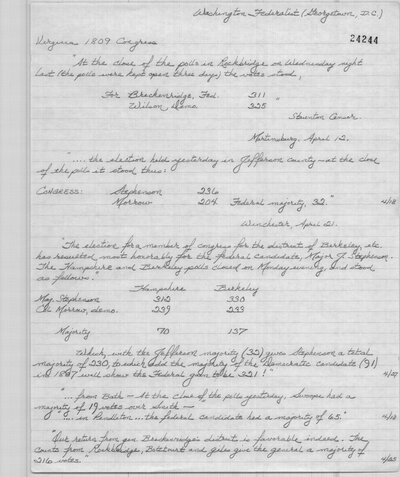 Washington Federalist (Georgetown, D.C.)
24244
Virginia 1809 Congress
"At the close of the polls in Rockbridge on Wednesday night
last (the polls were kept open three days) the votes stood,
For Breckenridge, Fed. 311
Wilson, Demo. 325 "
Staunton Censor.
Martinsburg, April 12.
".... the election held yesterday in Jefferson county—at the close
of the polls it stood thus:
CONGRESS: Stephenson 236
Morrow 204 Federal majority, 32." 4/18
Winchester, April 21.
"The election for a member of congress for the district of Berkeley, etc.
has resulted most honorably for the federal candidate, Major J. Stephenson.
The Hampshire and Berkeley polls closed on Monday evening, and stood
as follows:
Hampshire Berkeley
Maj. Stephenson 312 330
Col. Morrow, demo. 239 233
Majority 70 137
Which, with the Jefferson majority (32) gives Stephenson a total
majority of 230, to which add the majority of the Democratic candidate (91)
in 1807 will show the Federal gain to be 321!" 4/27
"... from Bath — At the close of the polls yesterday, Swoope had a
majority of 19 votes over Smith —
"... in Pendleton ... the federal candidate had a majority of 65." 4/18
"Our return from gen. Breckenridge's district is favorable indeed. The
counts from Rockbridge, Botetourt and Giles give the general a majority of
216 votes." 4/25